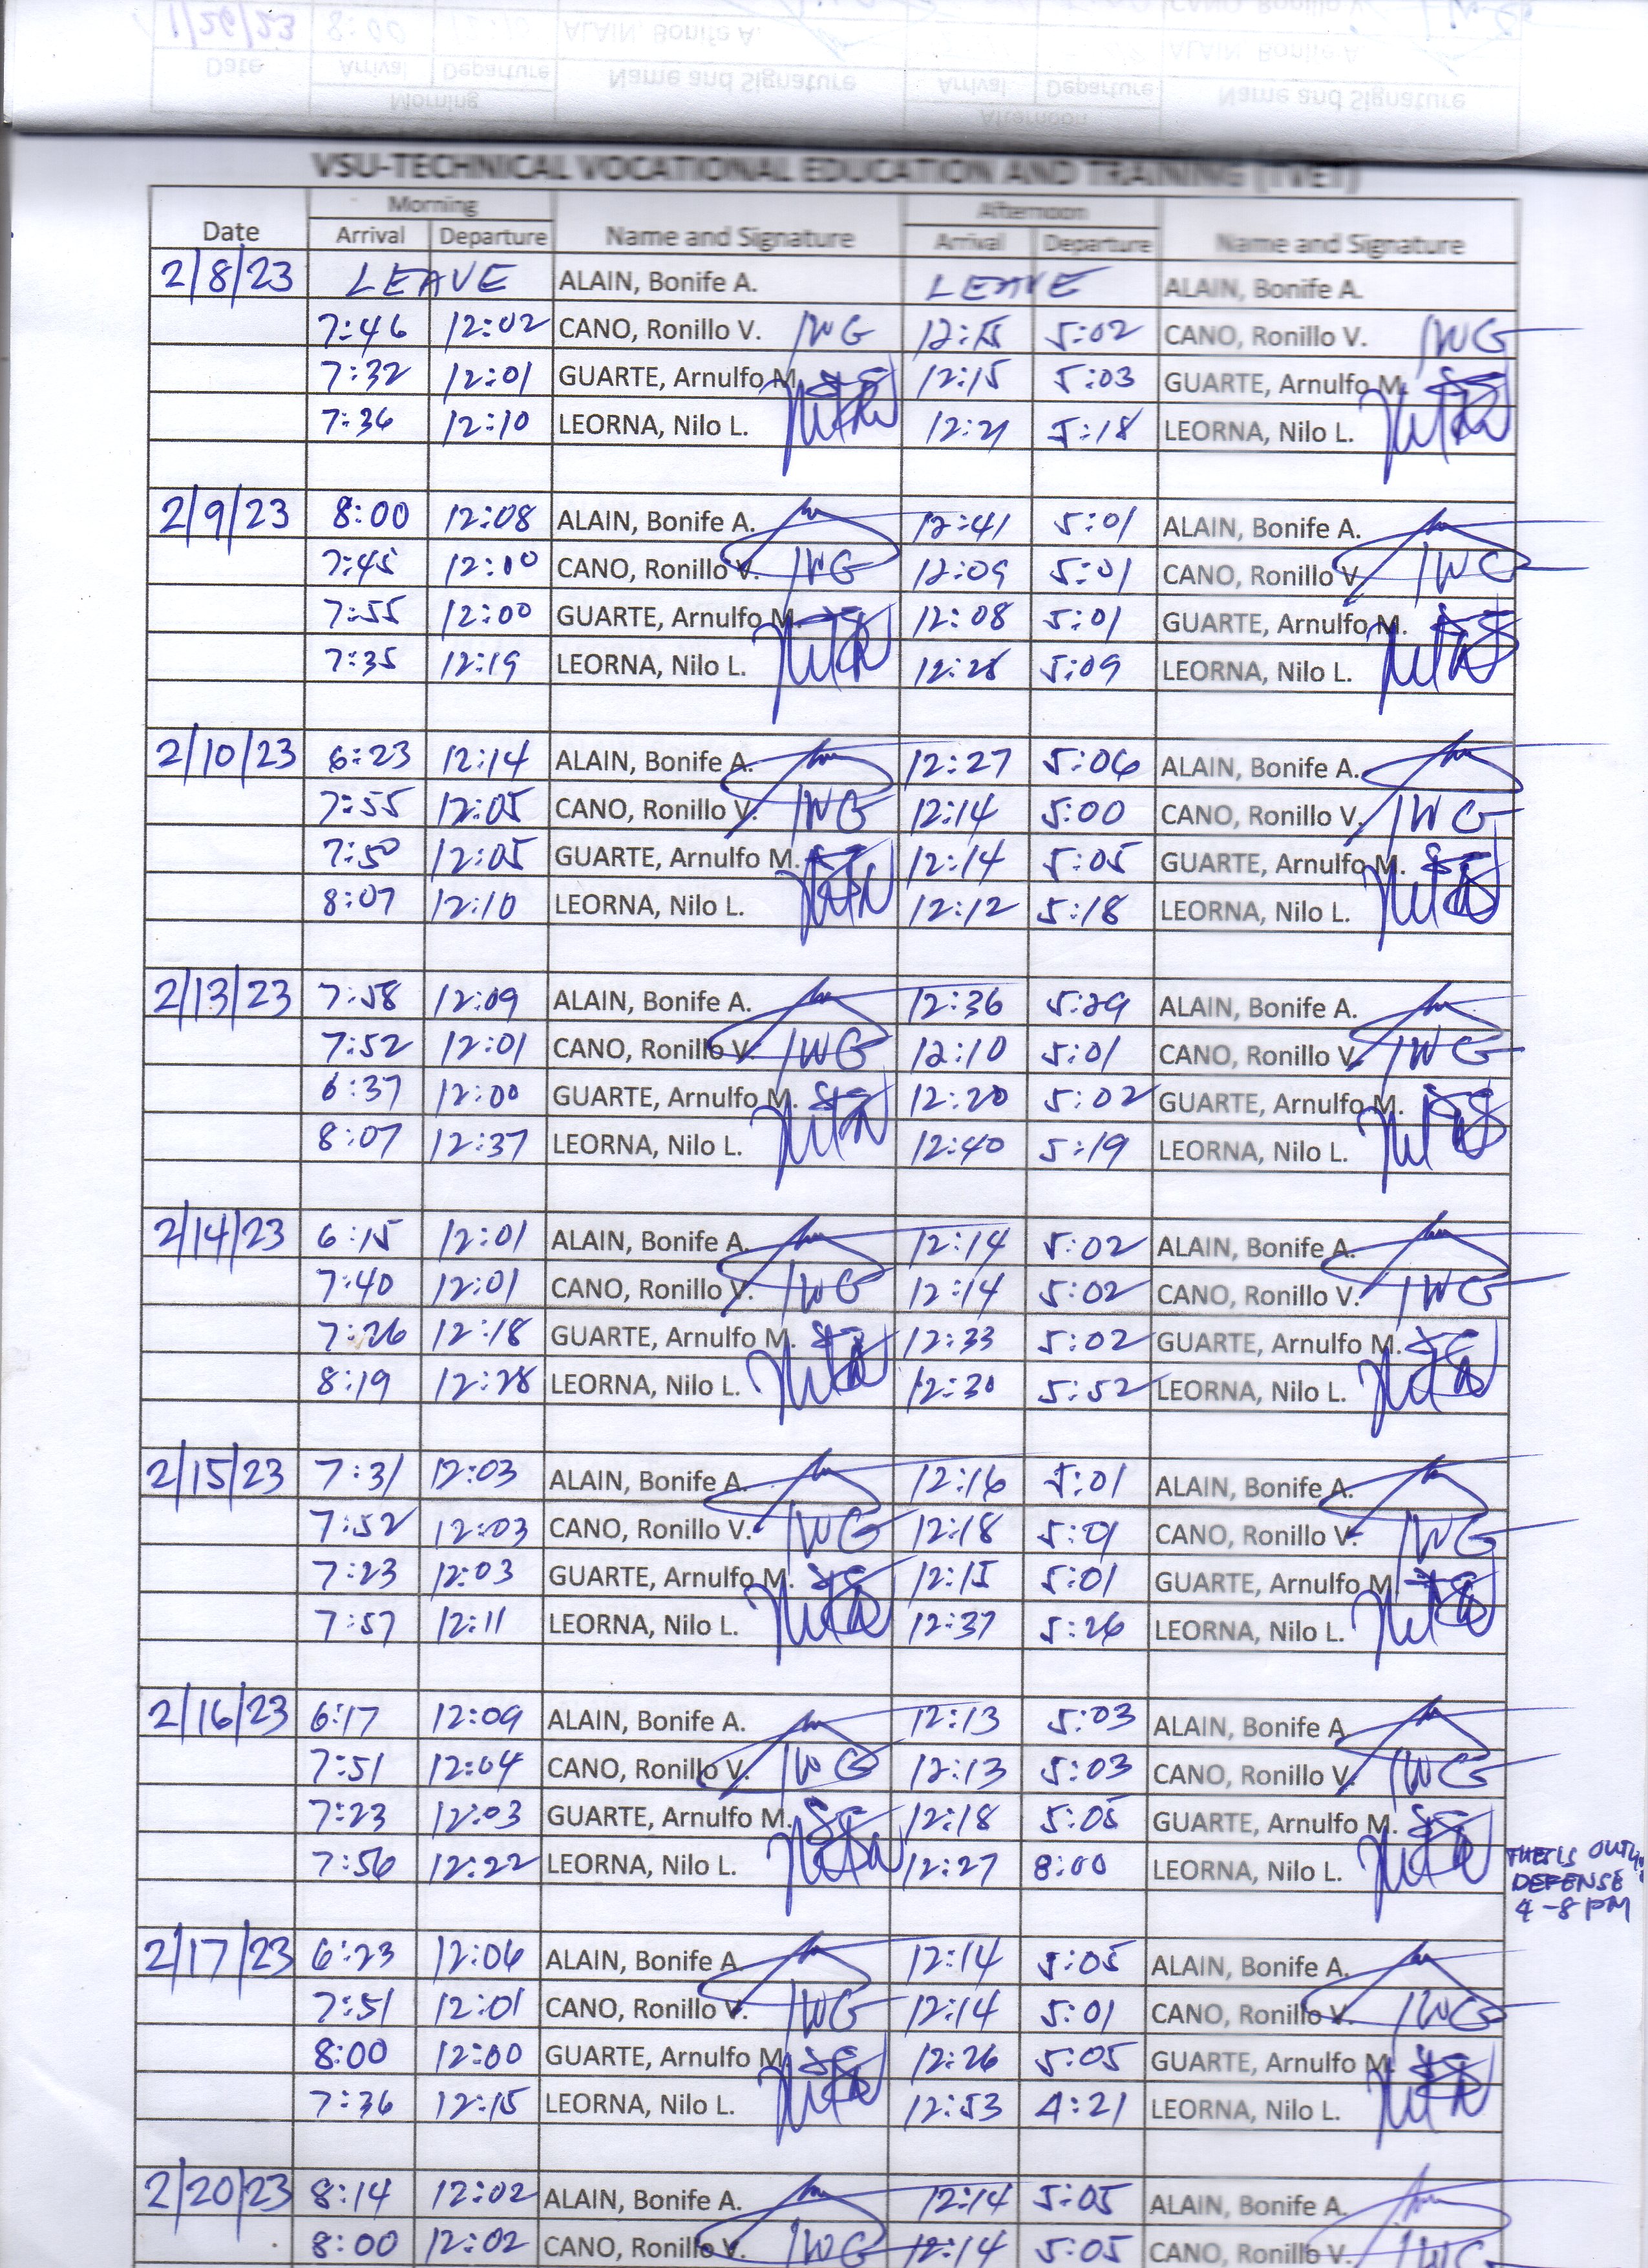 1/26/23 8:00 ALAIN, Bonife A. ALAIN, Bonife A. CANO, Ronillo V.
Date Arrival Departure Name and Signature Arrival Departure Name and Signature
Morning Afternoon
VSU-TECHNICAL VOCATIONAL EDUCATION AND TRAINING (TVET)
Morning Afternoon
Date Arrival Departure Name and Signature Arrival Departure Name and Signature
2/8/23 LEAVE ALAIN, Bonife A. LEAVE ALAIN, Bonife A.
7:46 12:02 CANO, Ronillo V. 5:02 CANO, Ronillo V.
7:32 12:01 GUARTE, Arnulfo M. 12:15 5:03 GUARTE, Arnulfo M.
7:36 12:10 LEORNA, Nilo L. 12:21 5:18 LEORNA, Nilo L.
2/9/23 8:00 12:08 ALAIN, Bonife A. 12:41 5:01 ALAIN, Bonife A.
7:45 12:10 CANO, Ronillo V. 12:09 5:01 CANO, Ronillo V.
7:55 12:00 GUARTE, Arnulfo M. 12:08 5:01 GUARTE, Arnulfo M.
7:35 12:19 LEORNA, Nilo L. 5:09 LEORNA, Nilo L.
2/10/23 6:23 12:14 ALAIN, Bonife A. 12:27 5:06 ALAIN, Bonife A.
7:55 12:05 CANO, Ronillo V. 12:14 5:00 CANO, Ronillo V.
7:50 12:05 GUARTE, Arnulfo M. 12:14 5:05 GUARTE, Arnulfo M.
8:07 12:10 LEORNA, Nilo L. 12:12 5:18 LEORNA, Nilo L.
2/13/23 7:58 12:09 ALAIN, Bonife A. 12:36 5:29 ALAIN, Bonife A.
7:52 12:01 CANO, Ronillo V. 12:10 5:01 CANO, Ronillo V.
6:37 12:00 GUARTE, Arnulfo M. 12:20 5:02 GUARTE, Arnulfo M.
8:07 12:37 LEORNA, Nilo L. 12:40 5:19 LEORNA, Nilo L.
2/14/23 6:15 12:01 ALAIN, Bonife A. 12:14 5:02 ALAIN, Bonife A.
7:40 12:01 CANO, Ronillo V. 12:14 5:02 CANO, Ronillo V.
7:26 12:18 GUARTE, Arnulfo M. 12:33 5:02 GUARTE, Arnulfo M.
8:19 12:28 LEORNA, Nilo L. 12:30 5:52 LEORNA, Nilo L.
2/15/23 7:31 12:03 ALAIN, Bonife A. 12:16 5:01 ALAIN, Bonife A.
7:52 12:03 CANO, Ronillo V. 12:18 5:01 CANO, Ronillo V.
7:23 12:03 GUARTE, Arnulfo M. 12:15 5:01 GUARTE, Arnulfo M.
7:57 12:11 LEORNA, Nilo L. 12:37 5:26 LEORNA, Nilo L.
2/16/23 6:17 12:09 ALAIN, Bonife A. 12:13 5:03 ALAIN, Bonife A.
7:51 12:04 CANO, Ronillo V. 12:13 5:03 CANO, Ronillo V.
7:23 12:03 GUARTE, Arnulfo M. 12:18 5:05 GUARTE, Arnulfo M.
7:56 12:22 LEORNA, Nilo L. 12:27 8:00 LEORNA, Nilo L.
THESIS
DEFENSE
4-8 PM
2/17/23 6:23 12:06 ALAIN, Bonife A. 12:14 5:05 ALAIN, Bonife A.
7:51 12:01 CANO, Ronillo V. 12:14 5:01 CANO, Ronillo V.
8:00 12:00 GUARTE, Arnulfo M. 12:26 5:05 GUARTE, Arnulfo M.
7:36 12:15 LEORNA, Nilo L. 12:53 4:21 LEORNA, Nilo L.
2/20/23 8:14 12:02 ALAIN, Bonife A. 12:14 5:05 ALAIN, Bonife A.
8:00 12:02 CANO, Ronillo V. 12:14 5:05 CANO, Ronillo V.